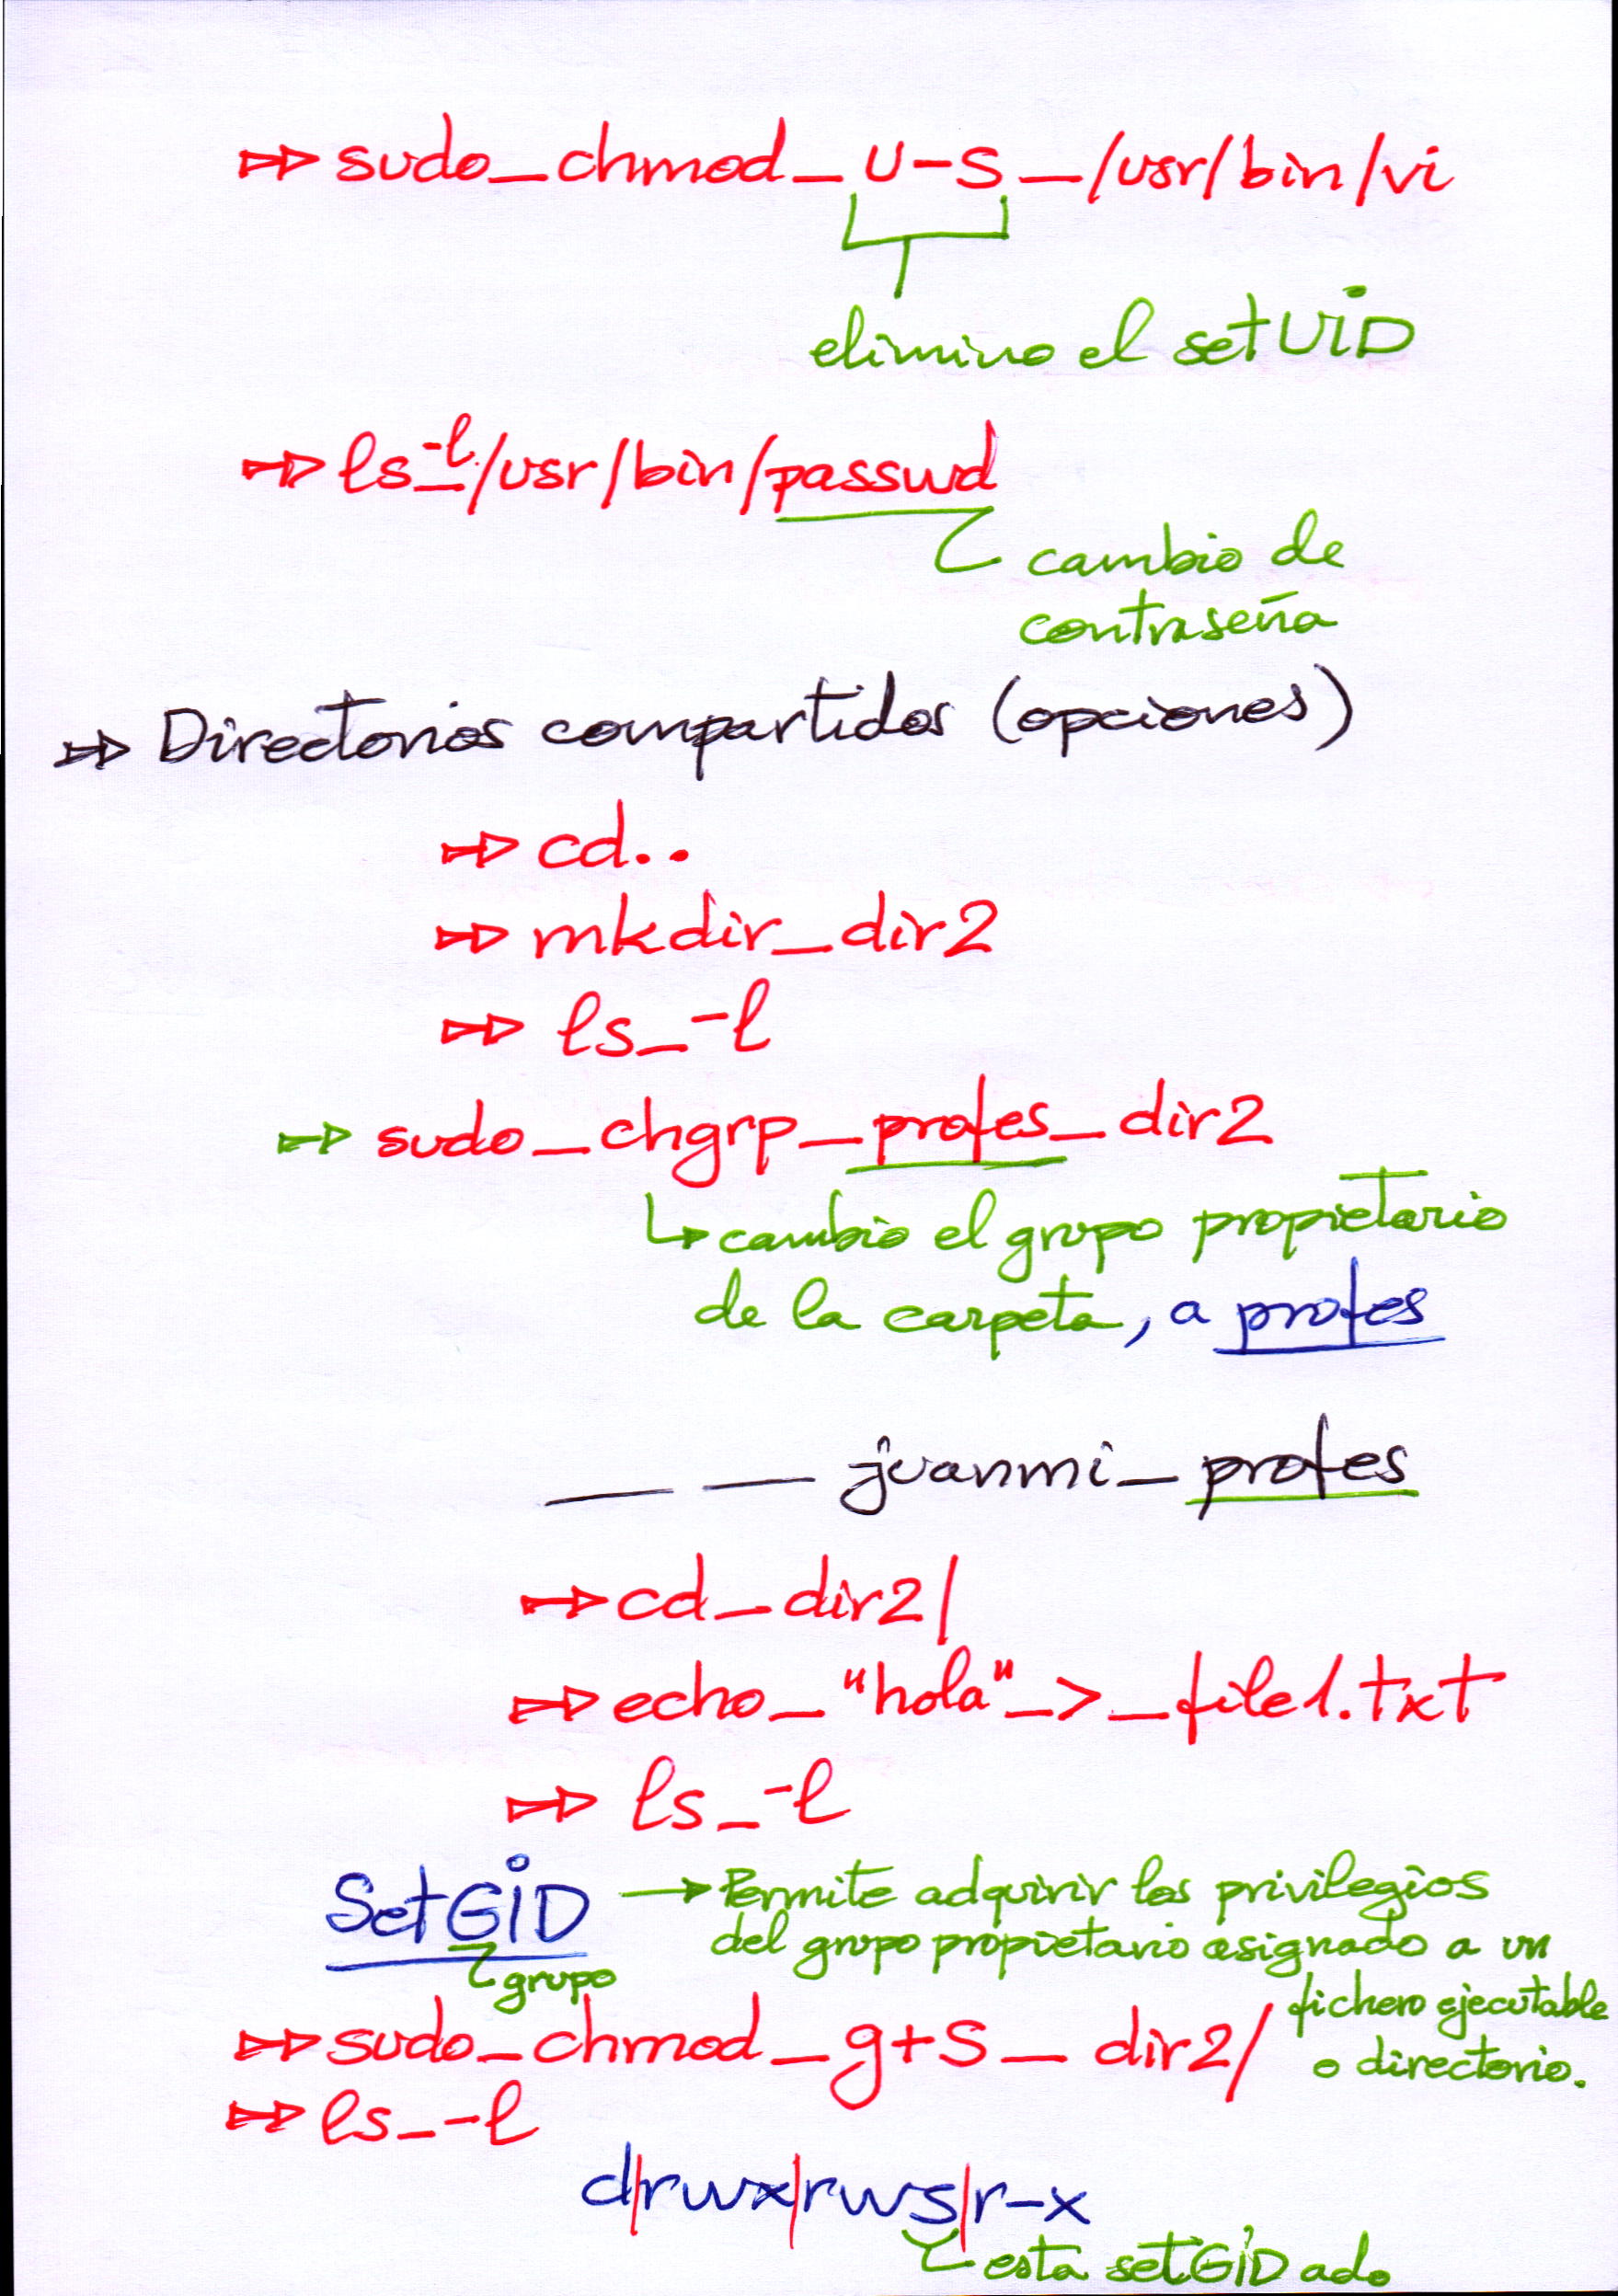 ⇒ sudo_chmod_u-s_/usr/bin/vi
elimino el setUiD
⇒ ls_-l/usr/bin/passwd
cambio de
contraseña
⇒ Directorios compartidos (opciones)
⇒ cd..
⇒ mkdir_dir2
⇒ ls_-l
⇒ sudo_chgrp_profes_dir2
↳ cambio el grupo propietario
de la carpeta, a profes
__ __ juanmi_profes
⇒ cd_dir2/
⇒ echo_"hola"_>_file1.txt
⇒ ls_-l
SetGiD → Permite adquirir los privilegios
del grupo propietario asignado a un
grupo
fichero ejecutable
⇒ sudo_chmod_g+s_dir2/
o directorio.
⇒ ls_-l
d|rwx|rws|r-x
esta setGiD ado